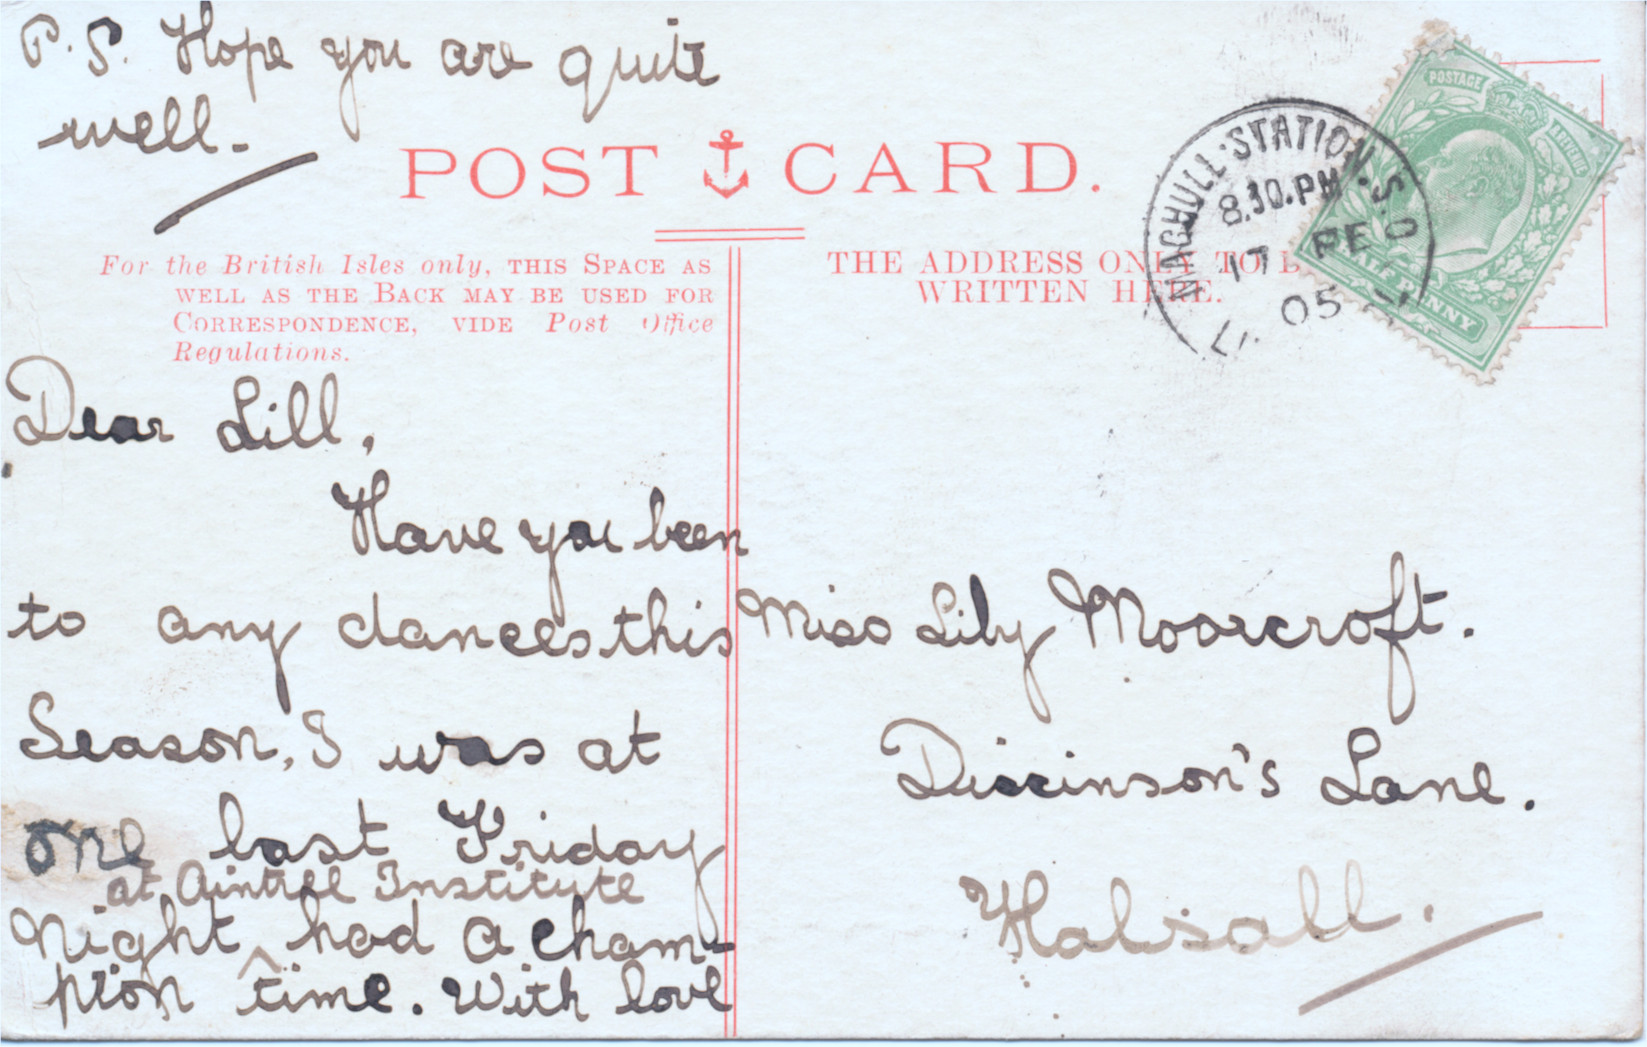 P.S. Hope you are quite
well.-
POST CARD.
For the British Isles only, THIS SPACE AS
WELL AS THE BACK MAY BE USED FOR
CORRESPONDENCE, VIDE Post Office
Regulations.
Dear Lill,
Have you been
to any dances this
Season, I was at
one last Friday
at Aintree Institute
Night had a cham-
pion time. With love
THE ADDRESS ONLY TO B
WRITTEN HERE.
MAGHULL STATION. S.O
8.30.PM
17 FE
05
POSTAGE
REVENUE
HALF PENNY
Miss Lily Moorcroft.
Dickinson's Lane.
Halsall.